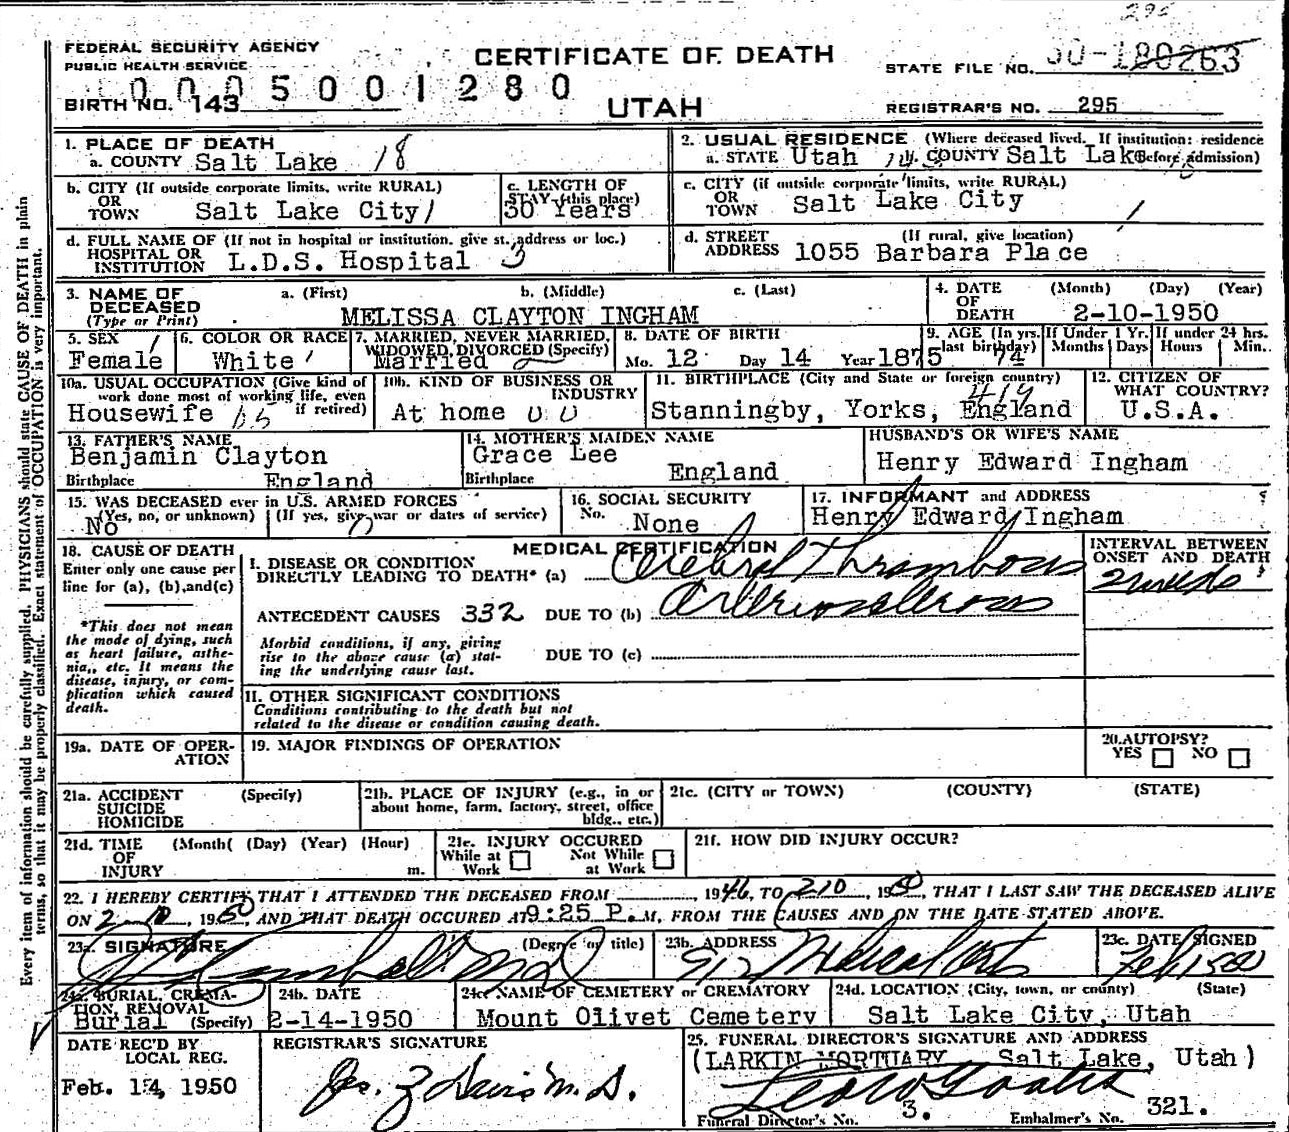 295
FEDERAL SECURITY AGENCY
PUBLIC HEALTH SERVICE
CERTIFICATE OF DEATH
STATE FILE NO. 50-180263
0005001280
BIRTH NO. 143
UTAH
REGISTRAR'S NO. 295
Every item of information should be carefully supplied. PHYSICIANS should state CAUSE OF DEATH in plain
terms, so that it may be properly classified. Exact statement of OCCUPATION is very important.
1. PLACE OF DEATH
a. COUNTY Salt Lake 18
2. USUAL RESIDENCE (Where deceased lived. If institution: residence
a. STATE Utah b. COUNTY Salt Lake before admission)
b. CITY (If outside corporate limits, write RURAL)
OR
TOWN Salt Lake City 1
c. LENGTH OF
STAY (this place)
30 Years
c. CITY (if outside corporate limits, write RURAL)
OR
TOWN Salt Lake City 1
d. FULL NAME OF (If not in hospital or institution, give st. address or loc.)
HOSPITAL OR
INSTITUTION L.D.S. Hospital 3
d. STREET (If rural, give location)
ADDRESS 1055 Barbara Place
3. NAME OF
DECEASED
(Type or Print)
a. (First) b. (Middle) c. (Last)
MELISSA CLAYTON INGHAM
4. DATE (Month) (Day) (Year)
OF
DEATH 2-10-1950
5. SEX 1
Female
6. COLOR OR RACE
White
7. MARRIED, NEVER MARRIED,
WIDOWED, DIVORCED (Specify)
Married 2
8. DATE OF BIRTH
Mo. 12 Day 14 Year 1875
9. AGE (In yrs.
last birthday)
74
If Under 1 Yr.
Months Days
If under 24 hrs.
Hours Min.
10a. USUAL OCCUPATION (Give kind of
work done most of working life, even
if retired)
Housewife
10b. KIND OF BUSINESS OR
INDUSTRY
At home
11. BIRTHPLACE (City and State or foreign country)
419
Stanningby, Yorks, England
12. CITIZEN OF
WHAT COUNTRY?
U.S.A.
13. FATHER'S NAME
Benjamin Clayton
Birthplace England
14. MOTHER'S MAIDEN NAME
Grace Lee
Birthplace England
HUSBAND'S OR WIFE'S NAME
Henry Edward Ingham
15. WAS DECEASED ever in U.S. ARMED FORCES
(Yes, no, or unknown) (If yes, give war or dates of service)
No 0
16. SOCIAL SECURITY
No. None
17. INFORMANT and ADDRESS
Henry Edward Ingham
18. CAUSE OF DEATH
Enter only one cause per
line for (a), (b), and(c)
*This does not mean
the mode of dying, such
as heart failure, asthe-
nia,, etc. It means the
disease, injury, or com-
plication which caused
death.
MEDICAL CERTIFICATION
I. DISEASE OR CONDITION
DIRECTLY LEADING TO DEATH* (a) Cerebral Thrombosis
ANTECEDENT CAUSES 332 DUE TO (b) Arteriosclerosis
Morbid conditions, if any, giving
rise to the above cause (a) stat-
ing the underlying cause last.
DUE TO (c)
INTERVAL BETWEEN
ONSET AND DEATH
2 weeks
II. OTHER SIGNIFICANT CONDITIONS
Conditions contributing to the death but not
related to the disease or condition causing death.
19a. DATE OF OPER-
ATION
19. MAJOR FINDINGS OF OPERATION
20. AUTOPSY?
YES NO
21a. ACCIDENT (Specify)
SUICIDE
HOMICIDE
21b. PLACE OF INJURY (e.g., in or
about home, farm, factory, street, office
bldg., etc.)
21c. (CITY or TOWN) (COUNTY) (STATE)
21d. TIME (Month( (Day) (Year) (Hour)
OF
INJURY m.
21e. INJURY OCCURED
While at Not While
Work at Work
21f. HOW DID INJURY OCCUR?
22. I HEREBY CERTIFY THAT I ATTENDED THE DECEASED FROM 1946, TO 2-10, 1950, THAT I LAST SAW THE DECEASED ALIVE
ON 2-10, 1950, AND THAT DEATH OCCURED AT 9:25 P. M, FROM THE CAUSES AND ON THE DATE STATED ABOVE.
23a. SIGNATURE (Degree or title)
23b. ADDRESS
912 Medical Arts
23c. DATE SIGNED
24a. BURIAL, CREMA-
TION, REMOVAL
Burial (Specify)
24b. DATE
2-14-1950
24c. NAME OF CEMETERY or CREMATORY
Mount Olivet Cemetery
24d. LOCATION (City, town, or county) (State)
Salt Lake City, Utah
DATE REC'D BY
LOCAL REG.
Feb. 14, 1950
REGISTRAR'S SIGNATURE
25. FUNERAL DIRECTOR'S SIGNATURE AND ADDRESS
(LARKIN MORTUARY Salt Lake, Utah)
Funeral Director's No. 3. Embalmer's No. 321.